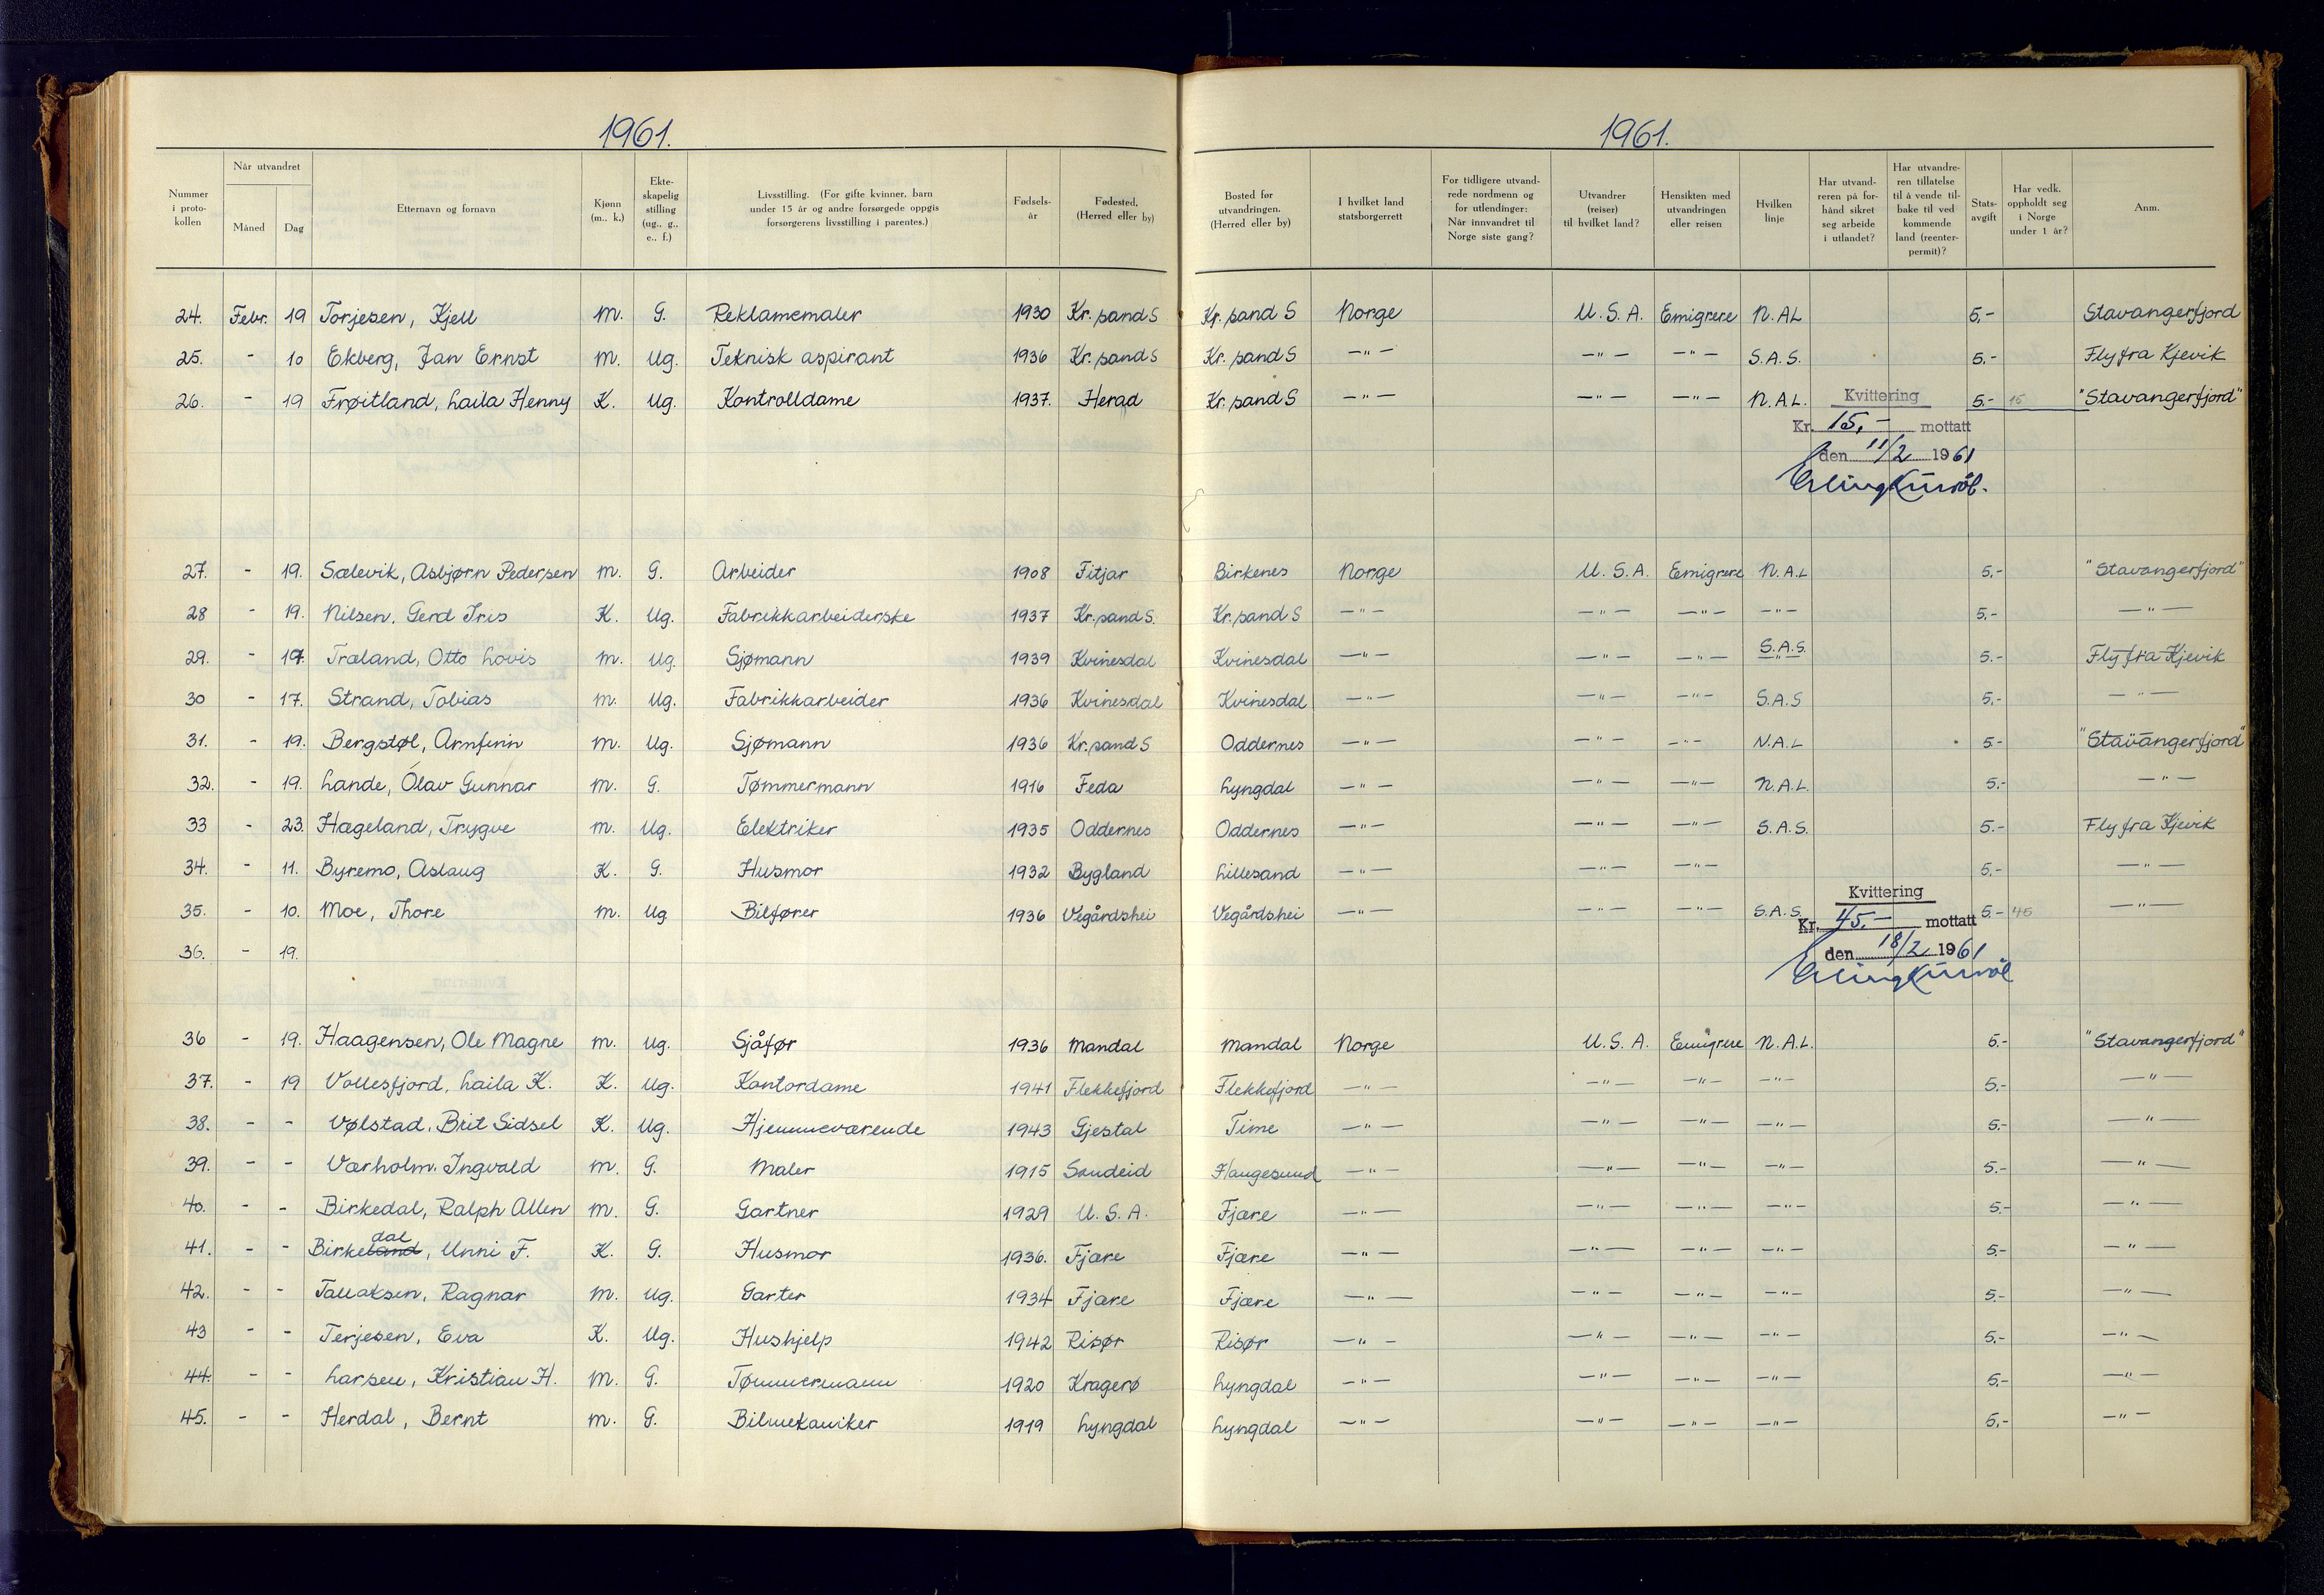 1961. 1961.
Nummer i proto- kollen | Når utvandret | Måned | Dag | Etternavn og fornavn | Kjønn (m., k.) | Ekte- skapelig stilling (ug., g., e., f.) | Livsstilling. (For gifte kvinner, barn under 15 år og andre forsørgede oppgis forsørgerens livsstilling i parentes.) | Fødsels- år | Fødested. (Herred eller by) | Bosted før utvandringen. (Herred eller by) | I hvilket land statsborgerrett | For tidligere utvand- rede nordmenn og for utlendinger: Når innvandret til Norge siste gang? | Utvandrer (reiser) til hvilket land? | Hensikten med utvandringen eller reisen | Hvilken linje | Har utvand- reren på for- hånd sikret seg arbeide i utlandet? | Har utvandre- ren tillatelse til å vende til- bake til ved kommende land (reenter- permit)? | Stats- avgift | Har vedk. oppholdt seg i Norge under 1 år? | Anm.
24. Febr. 19 Torjesen, Kjell M. G. Reklamemaler 1930 Kr.sand S Kr.sand S Norge U.S.A. Emigrere N.AL 5,- Stavangerfjord
25. - 10 Ekberg, Jan Ernst M. Ug. Teknisk aspirant 1936 Kr.sand S Kr.sand S —"— —"— —"— S.A.S. 5.- Fly fra Kjevik
26. - 19 Frøitland, Laila Henny K. Ug. Kontrolldame 1937. Herad Kr.sand S —"— —"— —"— N.A.L. 5.- 15 "Stavangerfjord"
Kvittering
Kr. 15,- mottatt
den 11/2 1961
27. - 19. Sælevik, Asbjørn Pedersen M. G. Arbeider 1908 Fitjar Birkenes Norge U.S.A. Emigrere N.A.L 5,- "Stavangerfjord"
28 - 19. Nilsen, Gerd Iris K. Ug. Fabrikkarbeiderske 1937 Kr.sand S. Kr.sand S —"— —"— —"— —"— 5,- —"—
29. - 17. Træland, Otto Lovis M. Ug. Sjømann 1939 Kvinesdal Kvinesdal —"— —"— —"— S.A.S. 5.- Fly fra Kjevik
30 - 17. Strand, Tobias M. Ug. Fabrikkarbeider 1936 Kvinesdal Kvinesdal —"— —"— —"— S.A.S 5,- —"—
31. - 19. Bergstøl, Arnfinn M. Ug. Sjømann 1936 Kr.sand S Oddernes —"— —"— —"— N.A.L 5- "Stavangerfjord"
32. - 19. Lande, Olav Gunnar M. G. Tømmermann 1916 Feda Lyngdal —"— —"— —"— N.A.L. 5,- —"—
33 - 23. Hægeland, Trygve M. Ug. Elektriker 1935 Oddernes Oddernes —"— —"— —"— S.A.S. 5.- Fly fra Kjevik
34. - 11. Byremo, Aslaug K. G. Husmor 1932 Bygland Lillesand —"— —"— —"— 5,- —"—
35. - 10. Moe, Thore M. Ug Bilfører 1936 Vegårdshei Vegårdshei —"— —"— —"— S.A.S. 5.- 45 —"—
Kvittering
Kr. 45,- mottatt
36. - 19.
den 18/2 1961
36 - 19. Haagensen, Ole Magne M. Ug. Sjåfør 1936 Mandal Mandal Norge U.S.A. Emigrere N.A.L. 5.- "Stavangerfjord"
37. - 19 Vollesfjord, Laila K. K. Ug. Kontordame 1941 Flekkefjord Flekkefjord —"— —"— —"— —"— 5.- —"—
38. - - Vølstad, Brit Sidsel K. Ug. Hjemmeværende 1943 Gjestal Time —"— —"— —"— —"— 5.- —"—
39. - - Værholm. Ingvald M. G. Maler 1915 Sandeid Haugesund —"— —"— —"— —"— 5.- —"—
40. - - Birkedal, Ralph Allen M. G. Gartner 1929 U.S.A. Fjære —"— —"— —"— —"— 5.- —"—
41. - - Birkeland dal, Unni F. K. G. Husmor 1936. Fjære Fjære —"— —"— —"— —"— 5.- —"—
42. - - Tallaksen, Ragnar M. Ug. Garter 1934 Fjære Fjære —"— —"— —"— —"— 5.- —"—
43 - - Terjesen, Eva K. Ug. Hushjelp 1942 Risør Risør —"— —"— —"— —"— 5.- —"—
44. - - Larsen, Kristian H. M. G. Tømmermann 1920 Kragerø Lyngdal —"— —"— —"— —"— 5.- —"—
45. - - Herdal, Bernt M. G. Bilmekaniker 1919 Lyngdal Lyngdal —"— —"— —"— —"— 5.- —"—